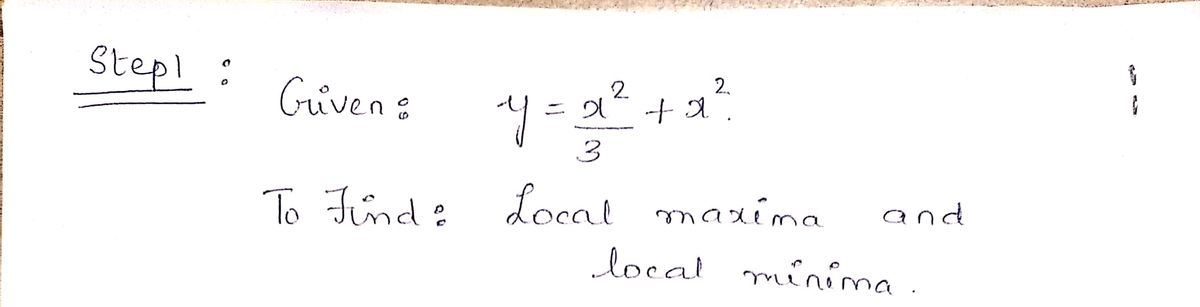 Step1 :
Given : y = x²/3 + x².
To Find : Local maxima and
local minima.